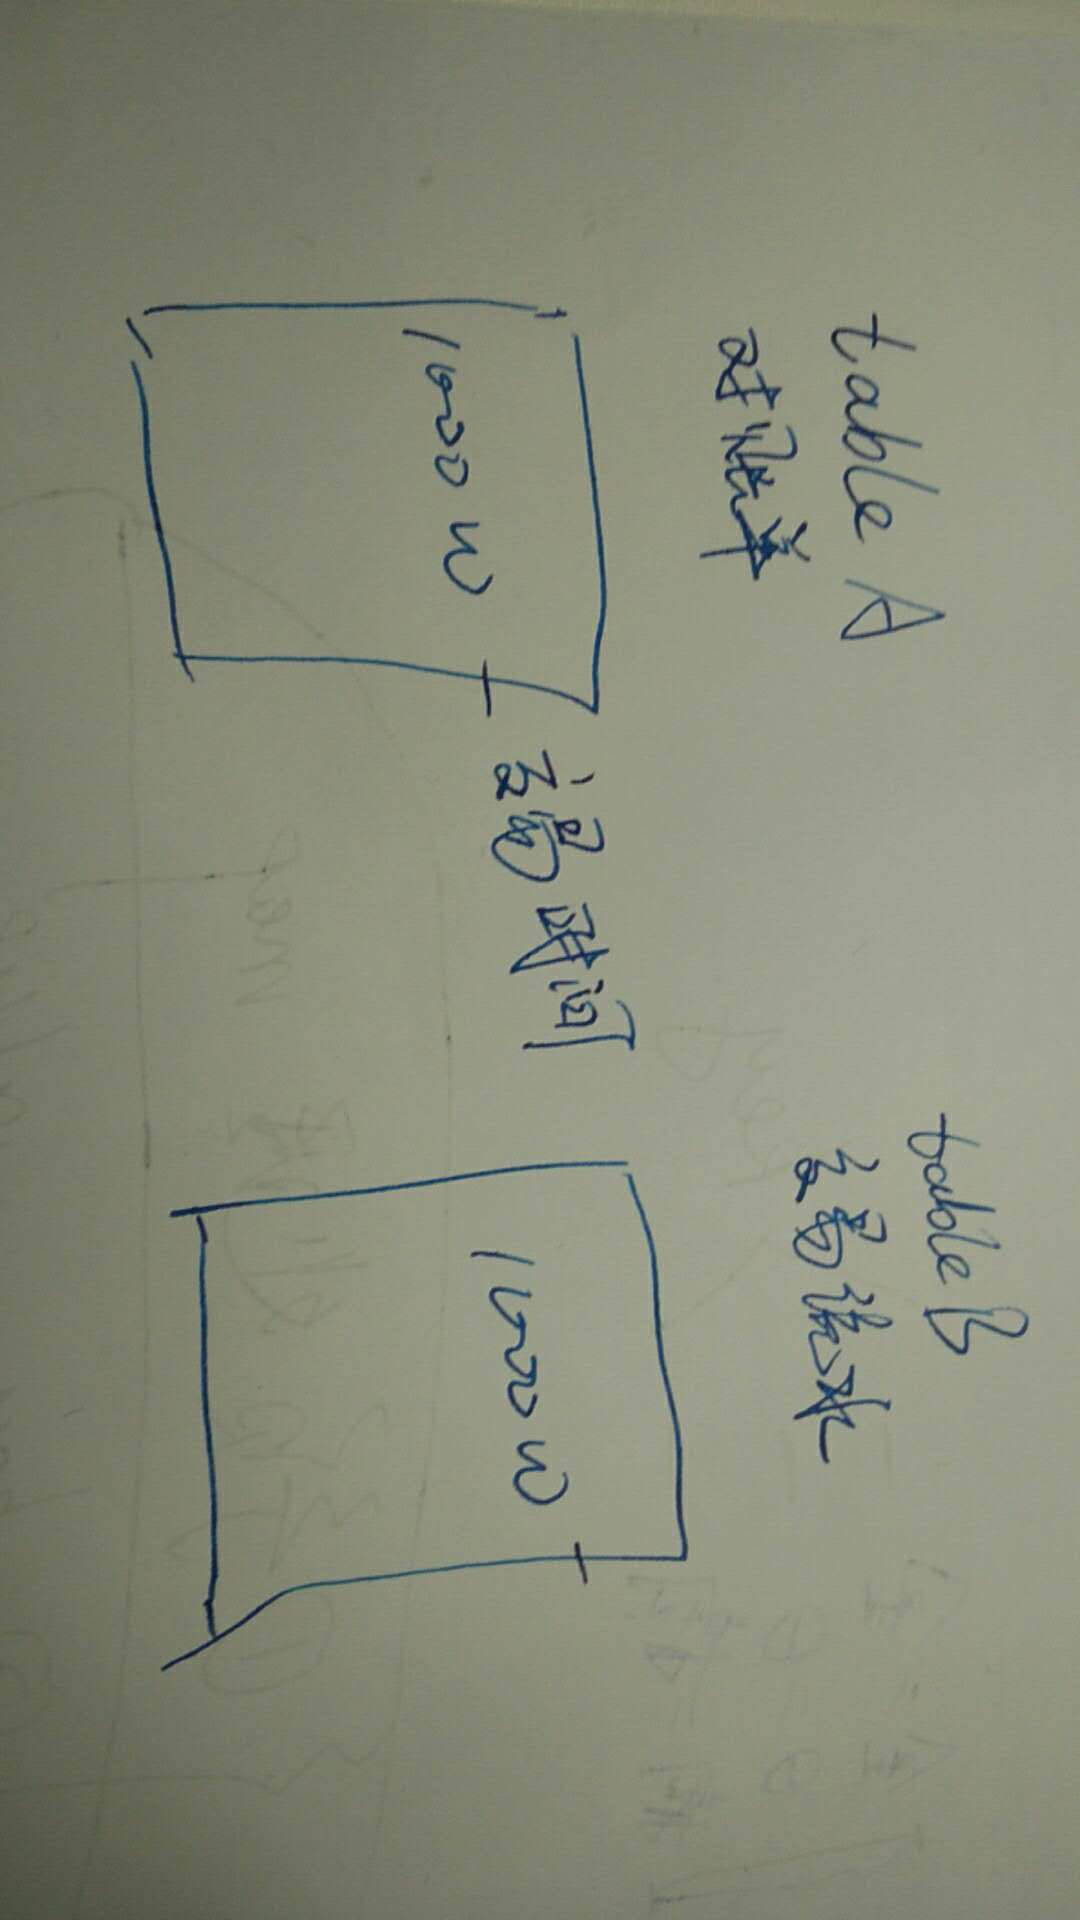 table A
对账单
1000W
交易时间
table B
交易流水
1000W